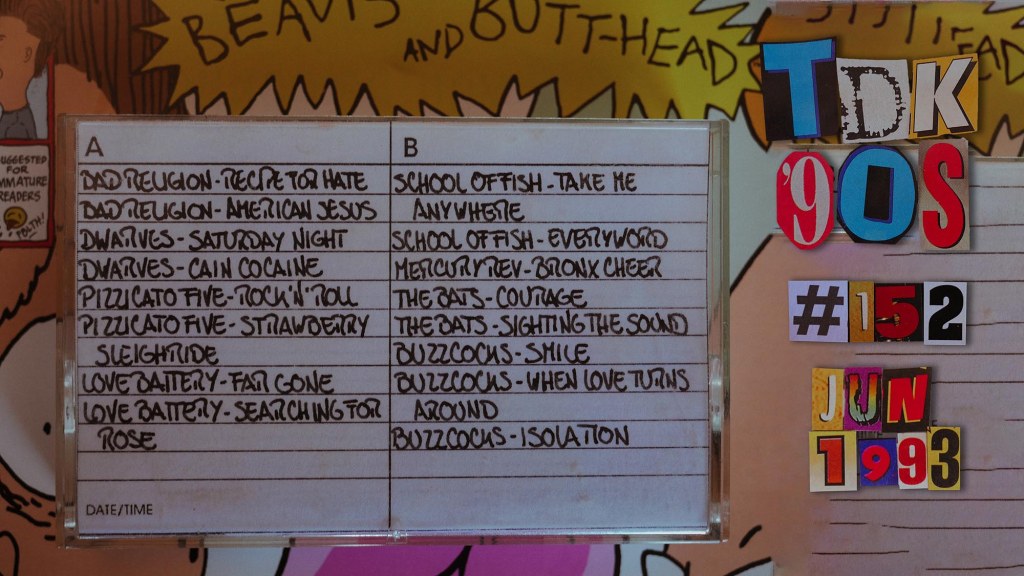 BEAVIS
AND BUTT-HEAD
SUGGESTED
FOR
IMMATURE
READERS
A
BAD RELIGION - RECIPE FOR HATE
BAD RELIGION - AMERICAN JESUS
DWARVES - SATURDAY NIGHT
DWARVES - CAIN COCAINE
PIZZICATO FIVE - ROCK 'N' ROLL
PIZZICATO FIVE - STRAWBERRY
SLEIGHRIDE
LOVE BATTERY - FAR GONE
LOVE BATTERY - SEARCHING FOR
ROSE
DATE/TIME
B
SCHOOL OF FISH - TAKE ME
ANYWHERE
SCHOOL OF FISH - EVERYWORD
MERCURY REV - BRONX CHEER
THE BATS - COURAGE
THE BATS - SIGHTING THE SOUND
BUZZCOCKS - SMILE
BUZZCOCKS - WHEN LOVE TURNS
AROUND
BUZZCOCKS - ISOLATION
TDK
'90S
#152
JUN
1993